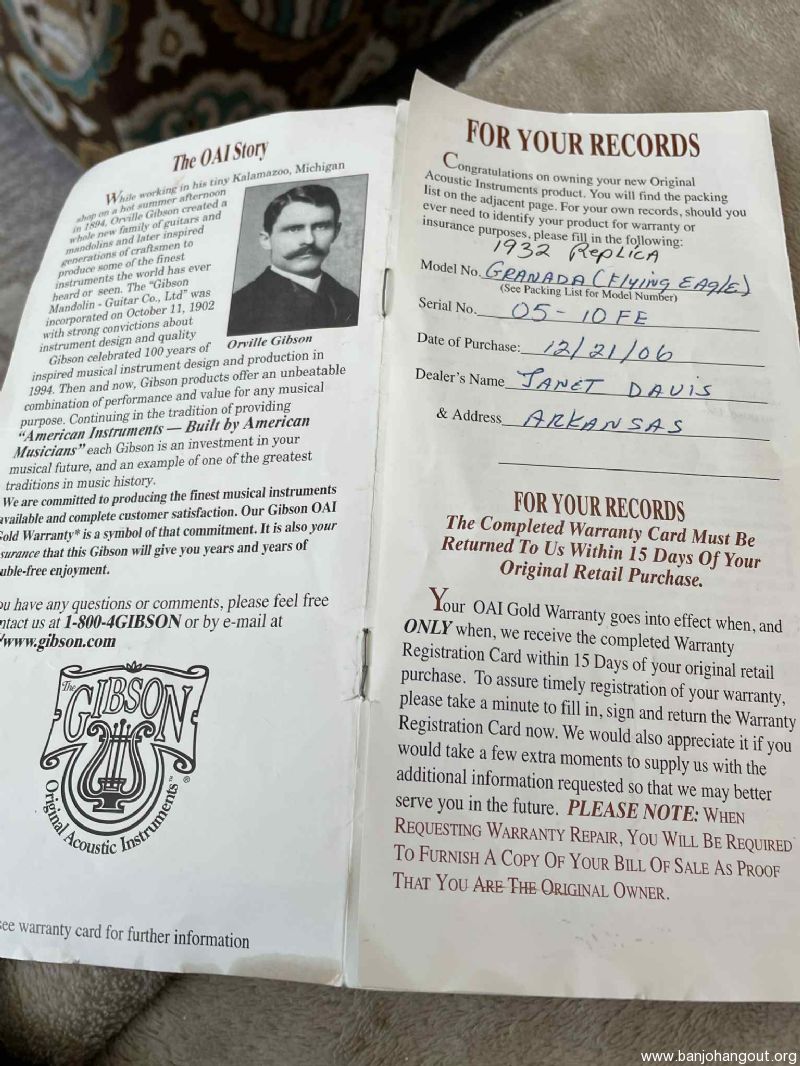 The OAI Story
While working in his tiny Kalamazoo, Michigan
shop on a hot summer afternoon
in 1894, Orville Gibson created a
whole new family of guitars and
mandolins and later inspired
generations of craftsmen to
produce some of the finest
instruments the world has ever
heard or seen. The "Gibson
Mandolin - Guitar Co., Ltd" was
incorporated on October 11, 1902
with strong convictions about
instrument design and quality
Orville Gibson
Gibson celebrated 100 years of
inspired musical instrument design and production in
1994. Then and now, Gibson products offer an unbeatable
combination of performance and value for any musical
purpose. Continuing in the tradition of providing
"American Instruments — Built by American
Musicians" each Gibson is an investment in your
musical future, and an example of one of the greatest
traditions in music history.
We are committed to producing the finest musical instruments
available and complete customer satisfaction. Our Gibson OAI
old Warranty* is a symbol of that commitment. It is also your
surance that this Gibson will give you years and years of
uble-free enjoyment.
ou have any questions or comments, please feel free
ntact us at 1-800-4GIBSON or by e-mail at
/www.gibson.com
The
GIBSON
Original Acoustic Instruments™
®
see warranty card for further information
FOR YOUR RECORDS
Congratulations on owning your new Original
Acoustic Instruments product. You will find the packing
list on the adjacent page. For your own records, should you
ever need to identify your product for warranty or
insurance purposes, please fill in the following:
1932 Replica
Model No. GRANADA (Flying EAglE)
(See Packing List for Model Number)
Serial No. 05-10FE
Date of Purchase: 12/21/06
Dealer's Name JANET DAVIS
& Address ARKANSAS
FOR YOUR RECORDS
The Completed Warranty Card Must Be
Returned To Us Within 15 Days Of Your
Original Retail Purchase.
Your OAI Gold Warranty goes into effect when, and
ONLY when, we receive the completed Warranty
Registration Card within 15 Days of your original retail
purchase. To assure timely registration of your warranty,
please take a minute to fill in, sign and return the Warranty
Registration Card now. We would also appreciate it if you
would take a few extra moments to supply us with the
additional information requested so that we may better
serve you in the future. PLEASE NOTE: WHEN
REQUESTING WARRANTY REPAIR, YOU WILL BE REQUIRED
TO FURNISH A COPY OF YOUR BILL OF SALE AS PROOF
THAT YOU ARE THE ORIGINAL OWNER.
www.banjohangout.org